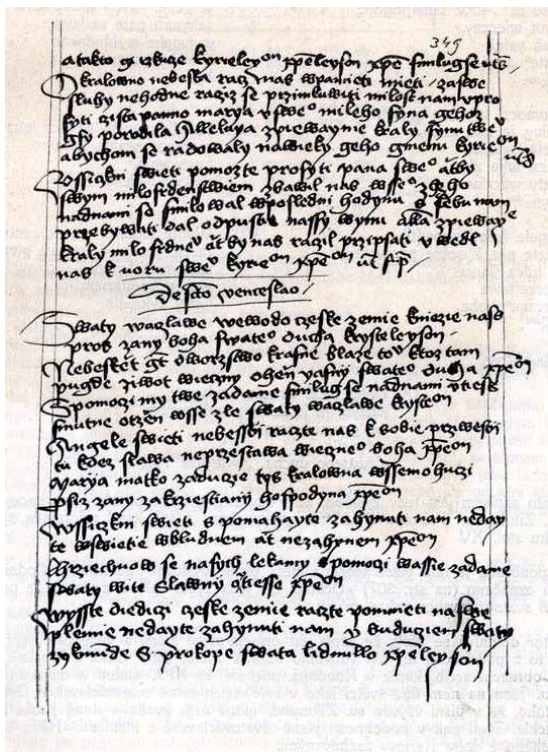 349
a takto gt
Kralowno nebeska racz nas wpamieti mieti zaswe
sluhy nehodne racziz se przimluwiti milost nam vpro
syti czista panno marya v sweo mileho syna gehoz
gsy porodila Alleluya zpiewaymie kraly
abychom se radowaly nawieky geho gmenu kyrieon
Wssiczkni swieti pomozte prosyti pana sweo atby
swym milosrdenstwiem zbawil nas wsseo zleho
nadnami se smilowal wposledni hodynu s nebu nam
przebywati dal odpustil nassy winu alla zpiewaye
kraly milosrdne at by nas raczil przipsati
nas k sweo kyrieon xpeon
De sco venceslao
Swaty waczlawe wewodo czeske zemie knieze nass
pros zany boha swateo ducha krysteleyson
Nebeske gt dworzstwo krasne blaze tou ktoz tam
puogde ziwot wieczny ohen yasny swateo ducha xpeon
Spomoczi my twe zadame smilug se nadnami vtiess
smutne otzen wsse zle swaty waczlawe krysteon
Angele swieti nebessti raczte nas k sobie przwesti
tu kdez slawa neprzestawa wieczneo boha xpeon
Maryja matko zaduczie tys kralowna wssemohuczi
prosiz zany zakrziestiany hospodyna xpeon
Wssiczkni swieti s pomahayte zahynuti nam neday
te wswietie wbludnem at nezahynem xpeon
hrziechuow se nasych lekamy spomoczi wassie zadame
swaty wite slawny xpeon
Wysste diediczi czeske zemie raczte pomnieti na swe
plemie nedayte zahynuti nam y buduczim swaty
zykmunde s prokope swata lidmillo xpeleyson